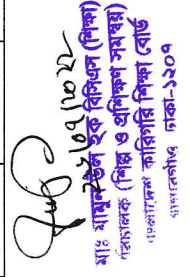 ২৮/০৭/২০২২
মোঃ মামুনউল হক বিসিএস (শিক্ষা)
পরিচালক (শিল্প ও প্রশিক্ষণ সমন্বয়)
বাংলাদেশ কারিগরি শিক্ষা বোর্ড
ঢাকা-১২০৭